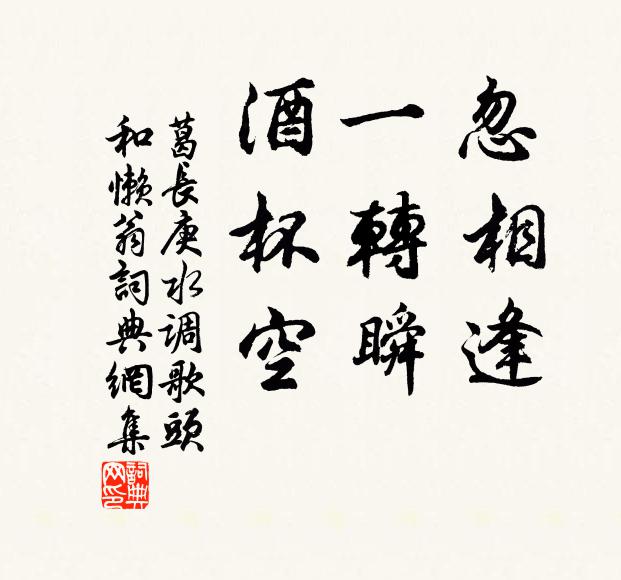 忽相逢
一轉瞬
酒杯空
葛長庚水调歌頭
和懒翁詞典網集
詞典
网印